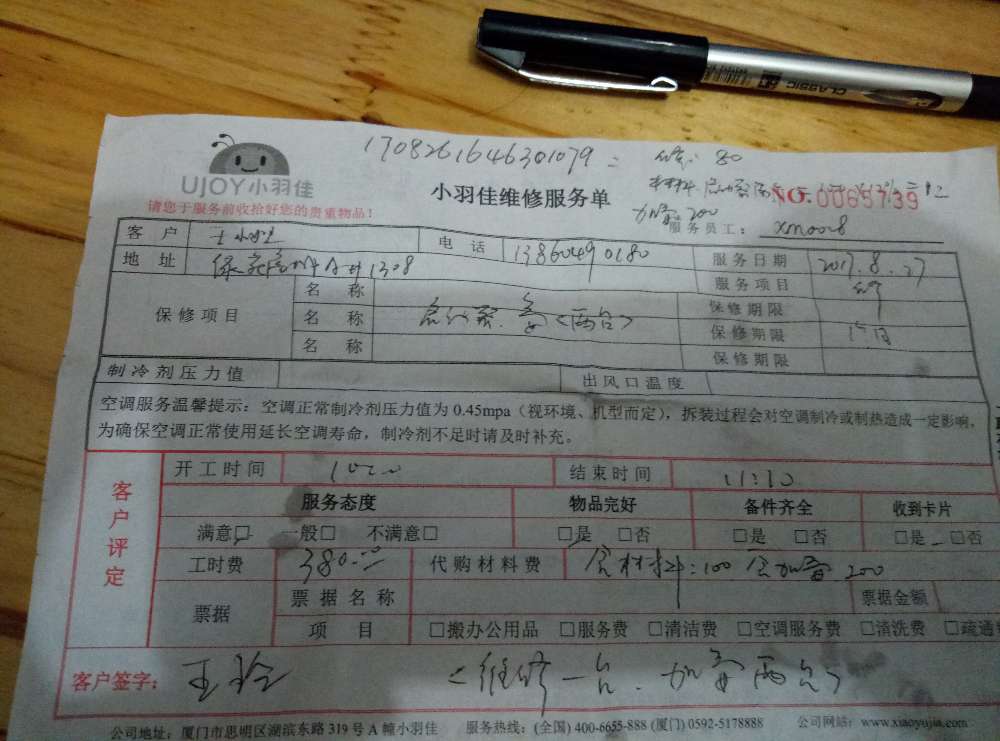 CLASSIC
1708261646301079 = 80
UJOY小羽佳
小羽佳维修服务单
NO. 0065739
请您于服务前收拾好您的贵重物品！
200
服务员工： xm008
客户 电话 13860490180 服务日期 2017.8.27
地址 1308 服务项目
保修项目
名称 保修期限
名称 （两台） 保修期限
名称 保修期限
制冷剂压力值 出风口温度
空调服务温馨提示：空调正常制冷剂压力值为 0.45mpa（视环境、机型而定），拆装过程会对空调制冷或制热造成一定影响，
为确保空调正常使用延长空调寿命，制冷剂不足时请及时补充。
客户评定
开工时间 结束时间 11:10
服务态度 物品完好 备件齐全 收到卡片
满意□ 一般□ 不满意□ □是 □否 □是 □否 □是 □否
工时费 380.00 代购材料费 含材料:100 含加 200
票据 票据名称 票据金额
项目 □搬办公用品 □服务费 □清洁费 □空调服务费 □清洗费 □疏通
客户签字： 王玲 （维修一台.加 两台）
公司地址：厦门市思明区湖滨东路 319 号 A 幢小羽佳 服务热线：(全国) 400-6655-888 (厦门) 0592-5178888 公司网站：www.xiaoyujia.com